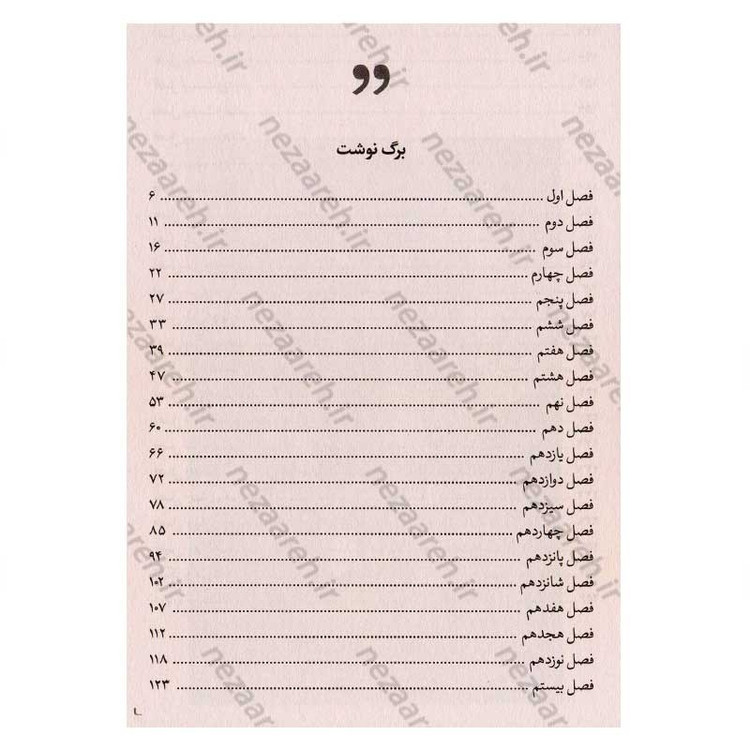 برگ نوشت
فصل اول ........ ۶
فصل دوم ........ ۱۱
فصل سوم ........ ۱۶
فصل چهارم ........ ۲۲
فصل پنجم ........ ۲۷
فصل ششم ........ ۳۳
فصل هفتم ........ ۳۹
فصل هشتم ........ ۴۷
فصل نهم ........ ۵۳
فصل دهم ........ ۶۰
فصل یازدهم ........ ۶۶
فصل دوازدهم ........ ۷۲
فصل سیزدهم ........ ۷۸
فصل چهاردهم ........ ۸۵
فصل پانزدهم ........ ۹۴
فصل شانزدهم ........ ۱۰۲
فصل هفدهم ........ ۱۰۷
فصل هجدهم ........ ۱۱۲
فصل نوزدهم ........ ۱۱۸
فصل بیستم ........ ۱۲۳
nezaareh.ir